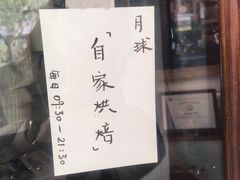 月球
「自家烘焙」
每日 09:30－21:30